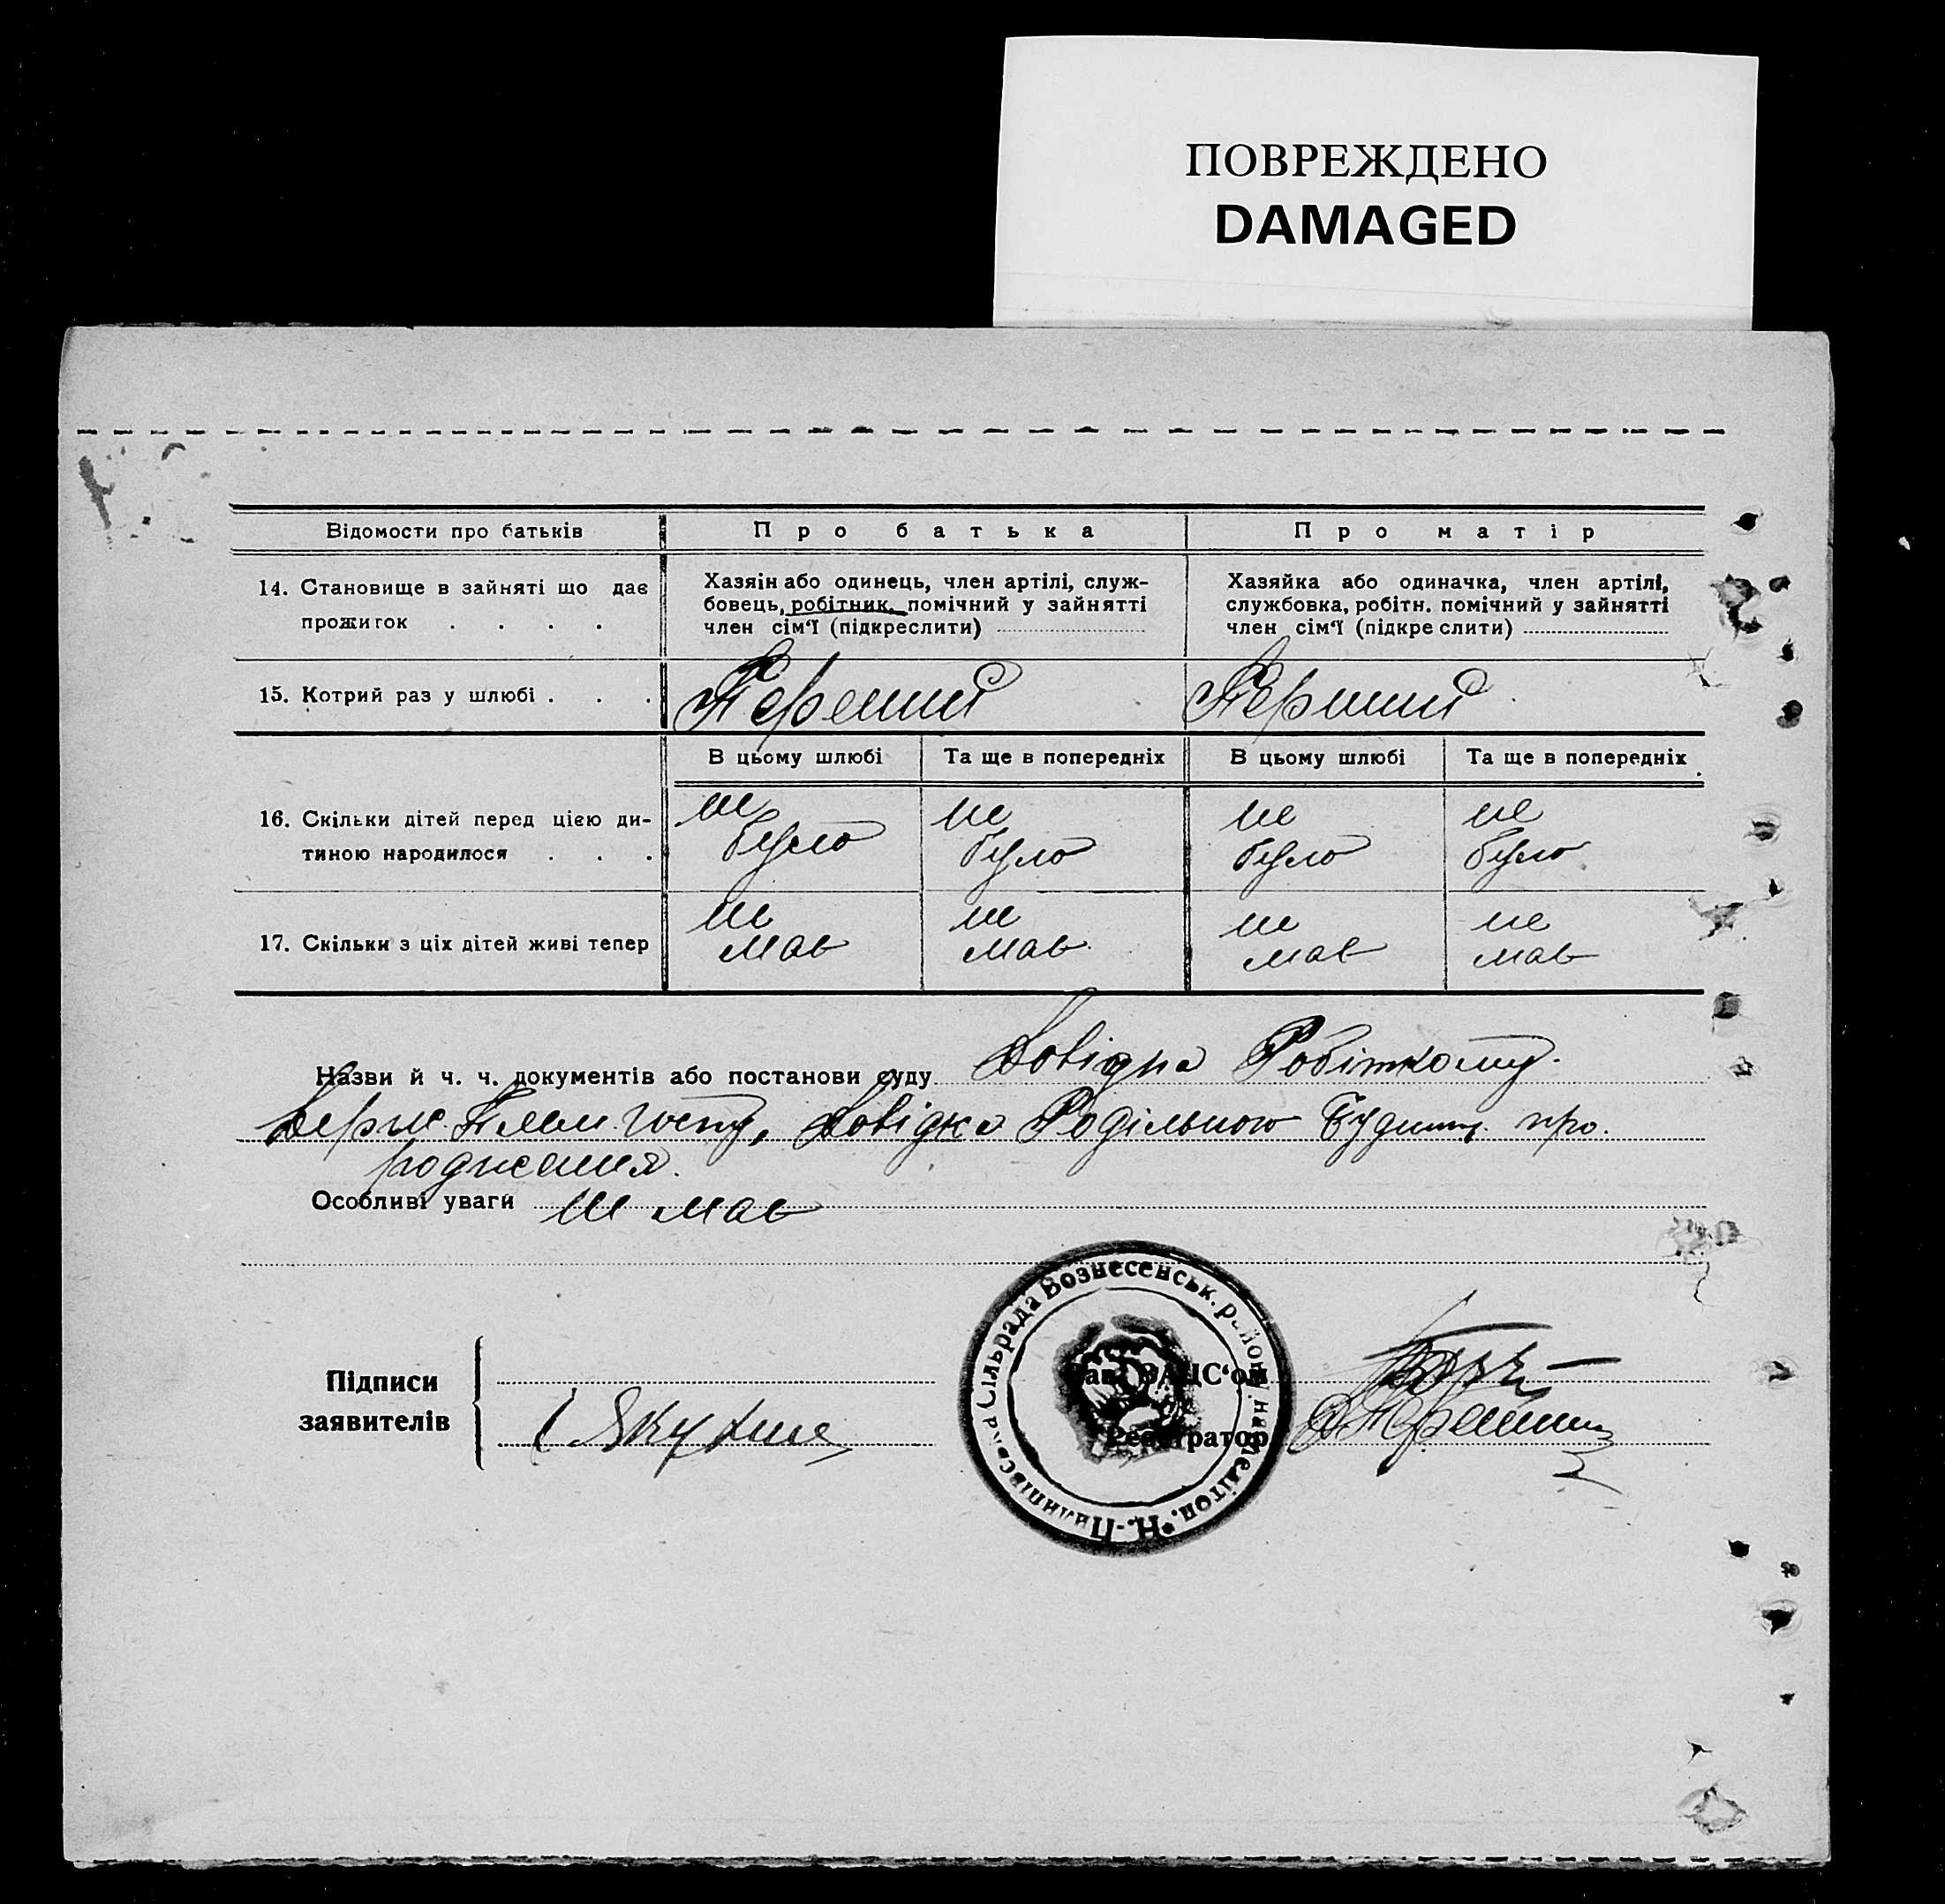 ПОВРЕЖДЕНО
DAMAGED
Відомости про батьків
Про батька
Про матір
14. Становище в зайняті що дає
прожиток . . . .
Хазяїн або одинець, член артілі, служ-
бовець, робітник, помічний у зайнятті
член сім‘ї (підкреслити)
Хазяйка або одиначка, член артілі,
службовка, робітн. помічний у зайнятті
член сім‘ї (підкреслити)
15. Котрий раз у шлюбі . . .
Перший
Перший
В цьому шлюбі
Та ще в попередніх
В цьому шлюбі
Та ще в попередніх
16. Скільки дітей перед цією ди-
тиною народилося . . .
не
було
не
було
не
було
не
було
17. Скільки з ціх дітей живі тепер
не
має
не
має
не
має
не
має
Назви й ч. ч. документів або постанови суду Довідка Робіткому
Держ. Племгоспу, Довідка Родільного Будинку про
родження.
Особливі уваги не має
Підписи
заявителів
Зав. ЗАЦС‘ом
Реєстратор
Сільрада Вознесенськ. району на Мелітоп. * Н.-Пилипівська